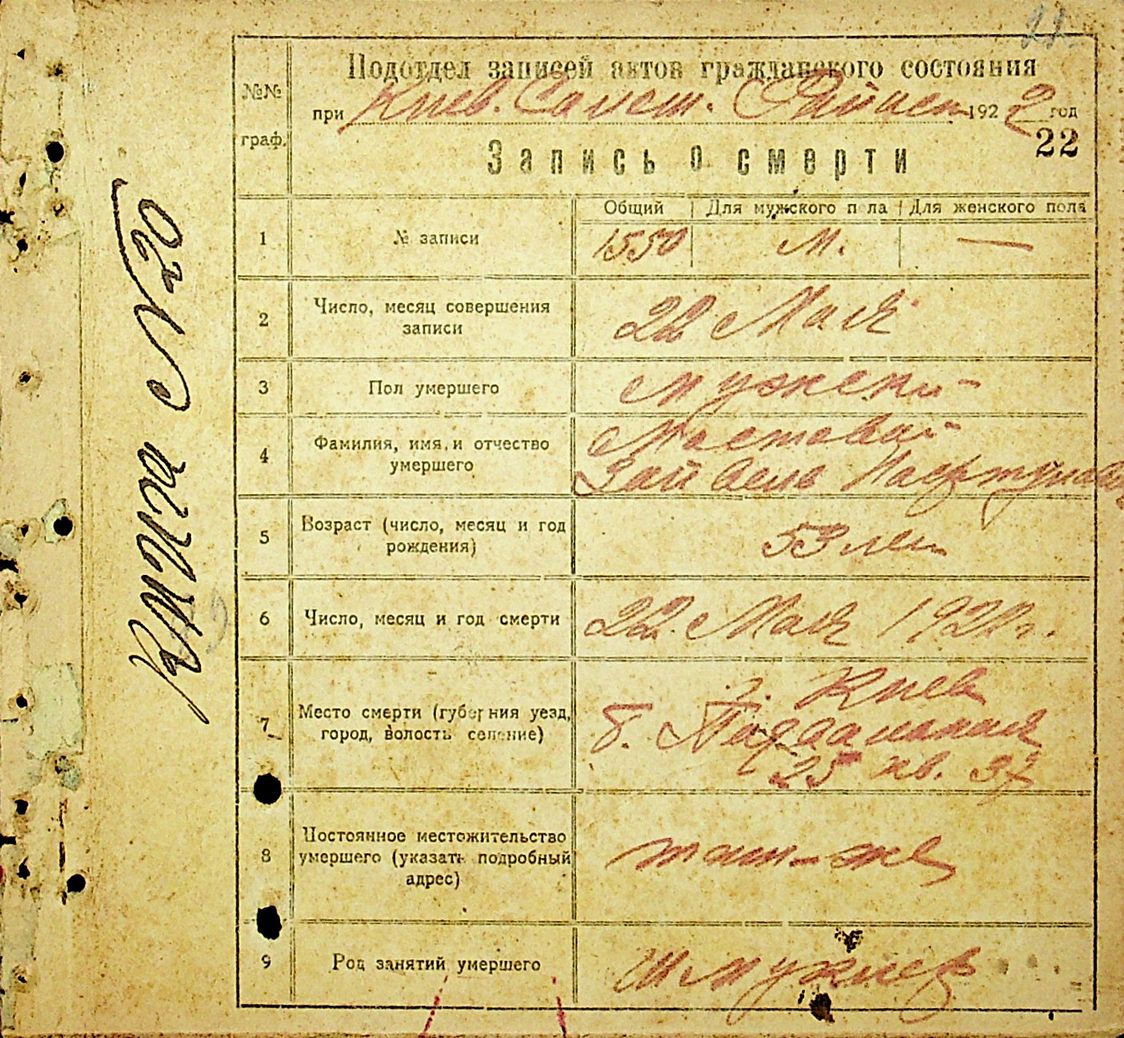 Книга №20
Подотдел записей актов гражданского состояния
при Киев. 1922 год
22
№№ граф.
Запись о смерти
Общий Для мужского пола Для женского пола
1 № записи 1550 М. —
2 Число, месяц совершения
записи 22 Мая
3 Пол умершего мужск.
4 Фамилия, имя, и отчество
умершего Мостовой
5 Возраст (число, месяц и год
рождения) 53 лет
6 Число, месяц и год смерти 22 Мая 1922 г.
7 Место смерти (губерния уезд,
город, волость селение) г. Киев
Б.
25 кв. 37
8 Постоянное местожительство
умершего (указать подробный
адрес) там-же
9 Род занятий умершего шмуклер